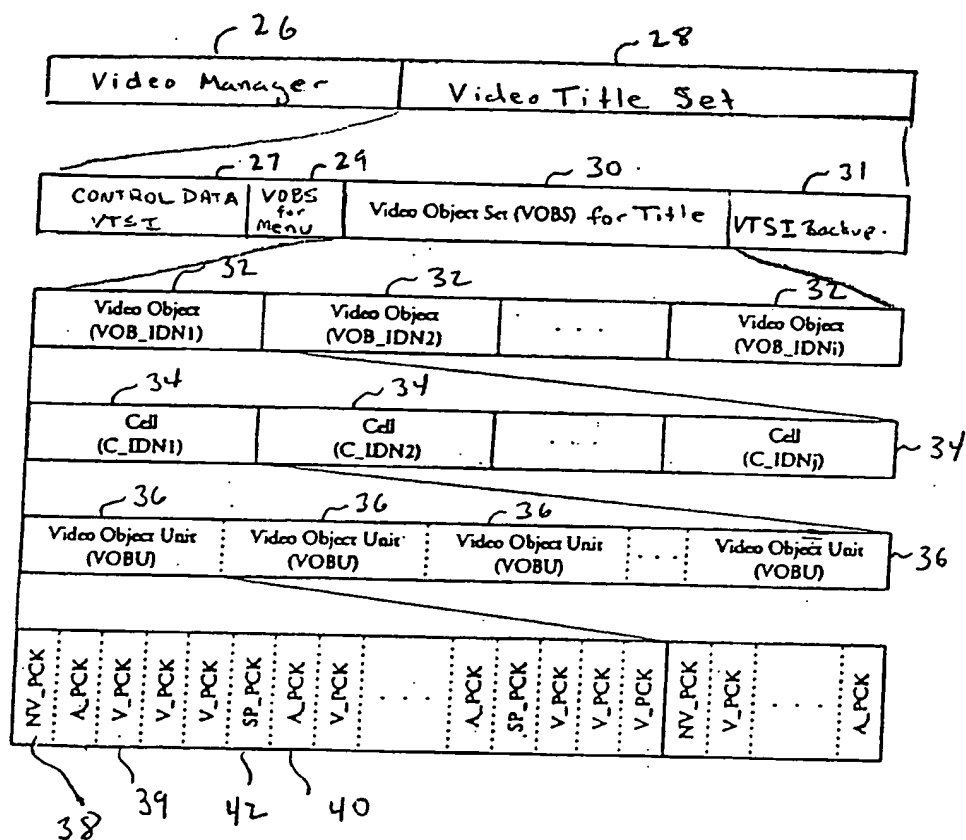 26 28
Video Manager Video Title Set
27 29 30 31
CONTROL DATA VTSI VOBS for Menu Video Object Set (VOBS) for Title VTSI Backup.
32 32 32
Video Object (VOB_IDN1) Video Object (VOB_IDN2) . . . . Video Object (VOB_IDNi)
34 34
Cell (C_IDN1) Cell (C_IDN2) . . . . Cell (C_IDNj) 34
36 36 36
Video Object Unit (VOBU) Video Object Unit (VOBU) Video Object Unit (VOBU) . . . Video Object Unit (VOBU) 36
NV_PCK A_PCK V_PCK V_PCK V_PCK SP_PCK A_PCK V_PCK . . . . A_PCK SP_PCK V_PCK V_PCK V_PCK NV_PCK V_PCK . . . . A_PCK
38 39 42 40